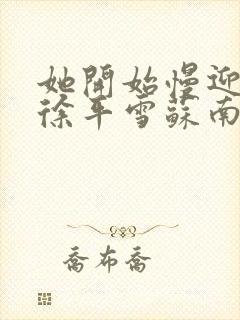 她開始慢迎
徐平雪蘇南
喬布喬